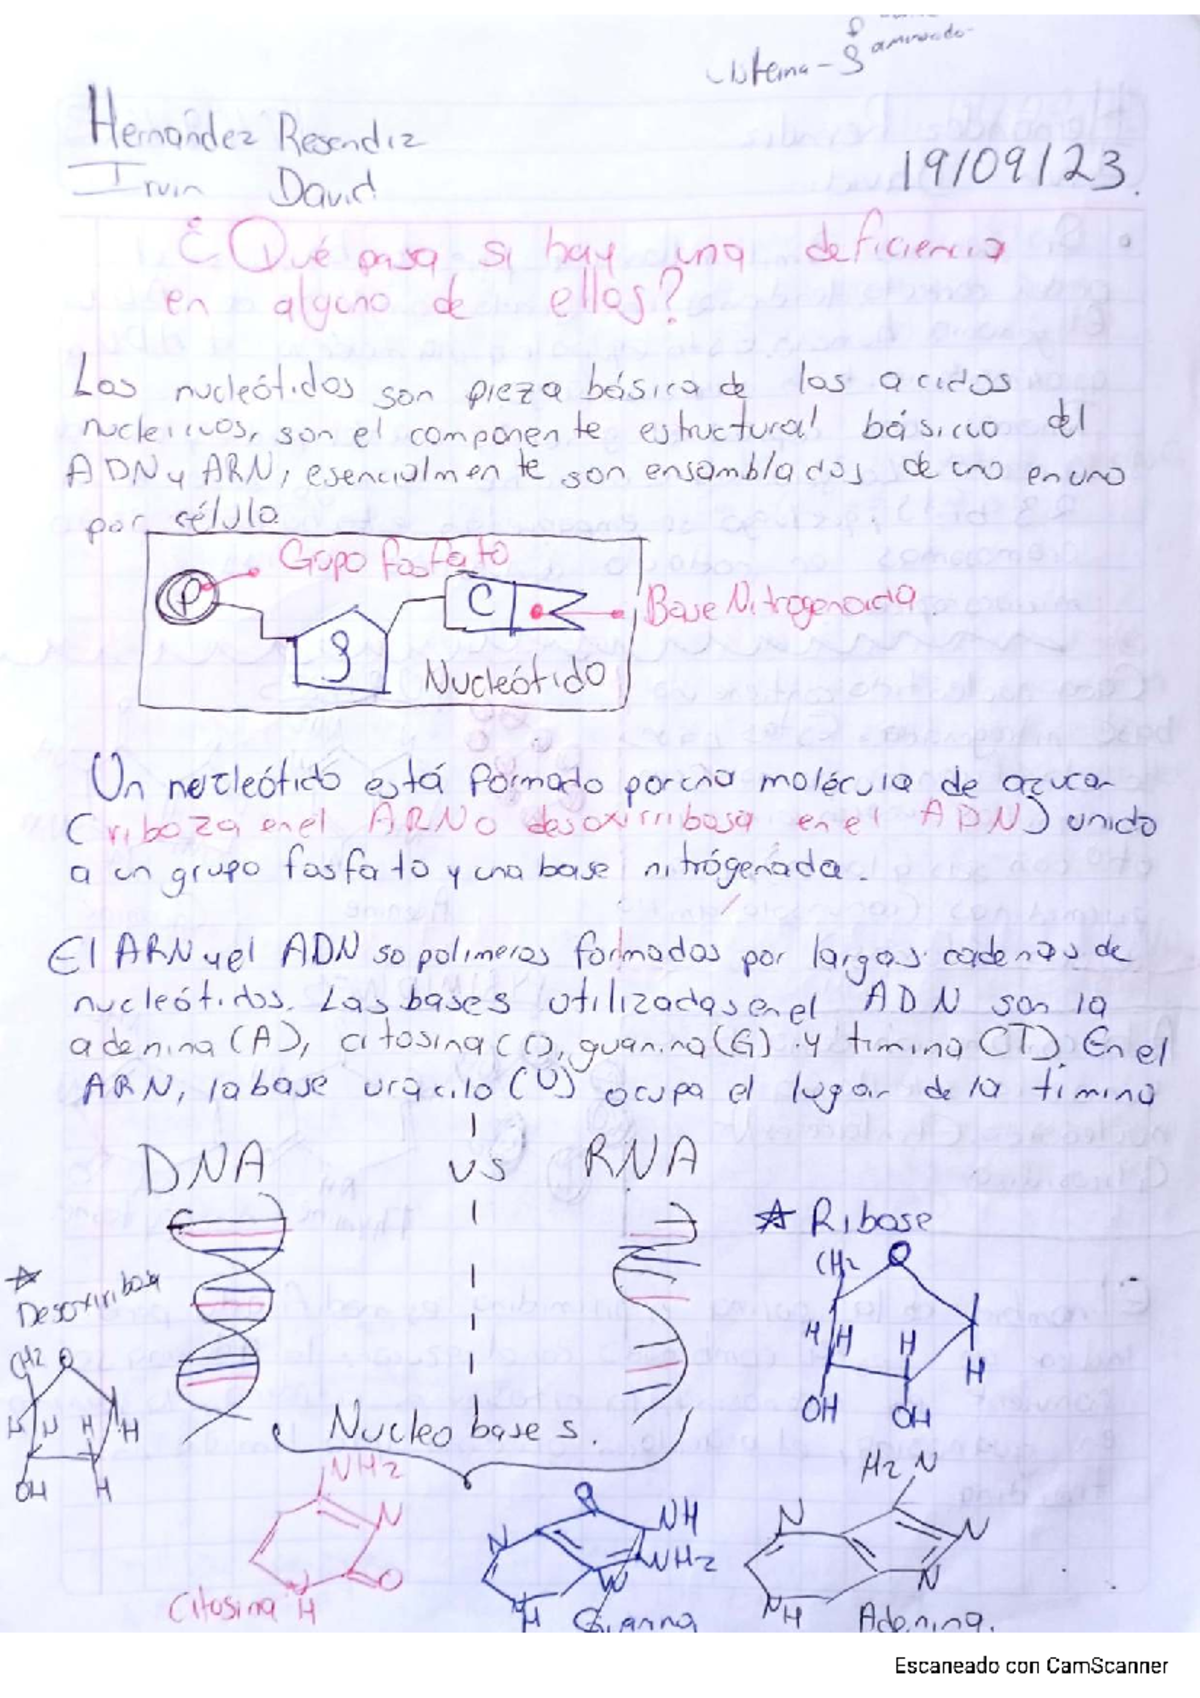 aminado
Hernández Resendiz
Irvin David
19/09/23.
¿Qué pasa si hay una deficiencia
en alguno de ellos?
Los nucleótidos son pieza básica de los acidos
nucleicos, son el componente estructural básico del
ADN y ARN, esencialmente son ensamblados de uno en uno
por célula
Grupo fosfato
P
C
Base Nitrogenada
Nucleótido
Un nucleótido está formado por una molécula de azucar
(riboza en el ARN o desoxirribosa en el ADN) unido
a un grupo fosfato y una base nitrógenada.
El ARN y el ADN so polimeros formados por largas cadenas de
nucleótidos. Las bases utilizadas en el ADN son la
adenina (A), citosina (C), guanina (G) y timina (T) En el
ARN, la base uracilo (U) ocupa el lugar de la timina
DNA vs RNA
☆ Ribose
☆
Desoxiribosa
CH2 O
H H H H
OH H
CH2 O
H H H H
OH OH
Nucleobases.
NH2
N
O
N
H
Citosina
O
N NH
NH2
N
NH
Guanina
H2N
N N
N
NH
Adenina.
Escaneado con CamScanner